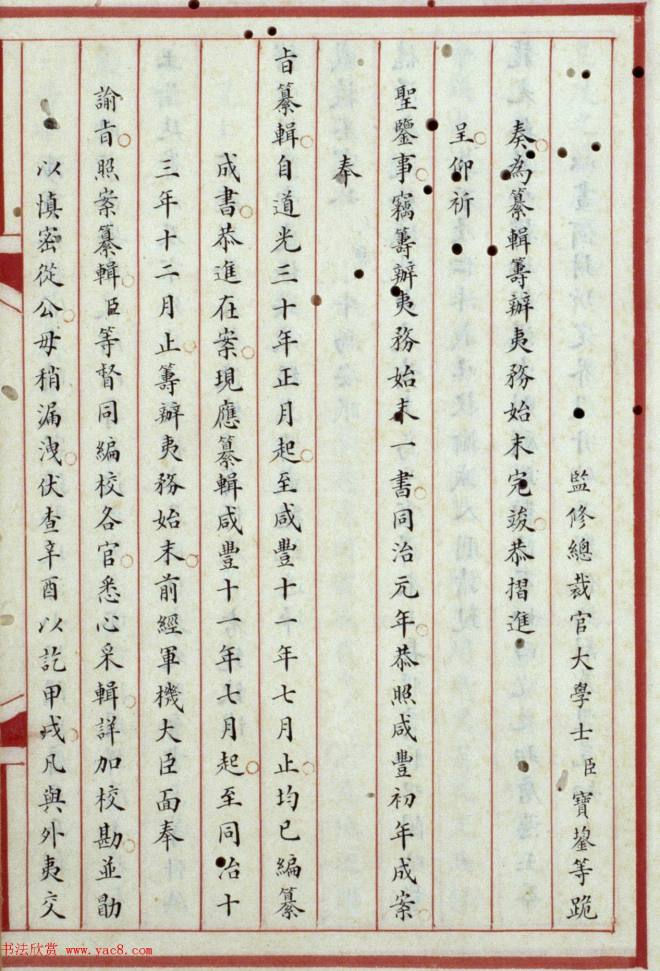 監修總裁官大學士臣寶鋆等跪
奏為纂輯籌辦夷務始末完竣恭摺進
呈仰祈
聖鑒事竊籌辦夷務始末一書同治元年恭照咸豐初年成案
奉
旨纂輯自道光三十年正月起至咸豐十一年七月止均已編纂
成書恭進在案現應纂輯咸豐十一年七月起至同治十
三年十二月止籌辦夷務始末前經軍機大臣面奉
諭旨照案纂輯臣等督同編校各官悉心采輯詳加校勘並勖
以慎密從公毋稍漏洩伏查辛酉以訖甲戌凡與外夷交
书法欣赏 www.yac8.com